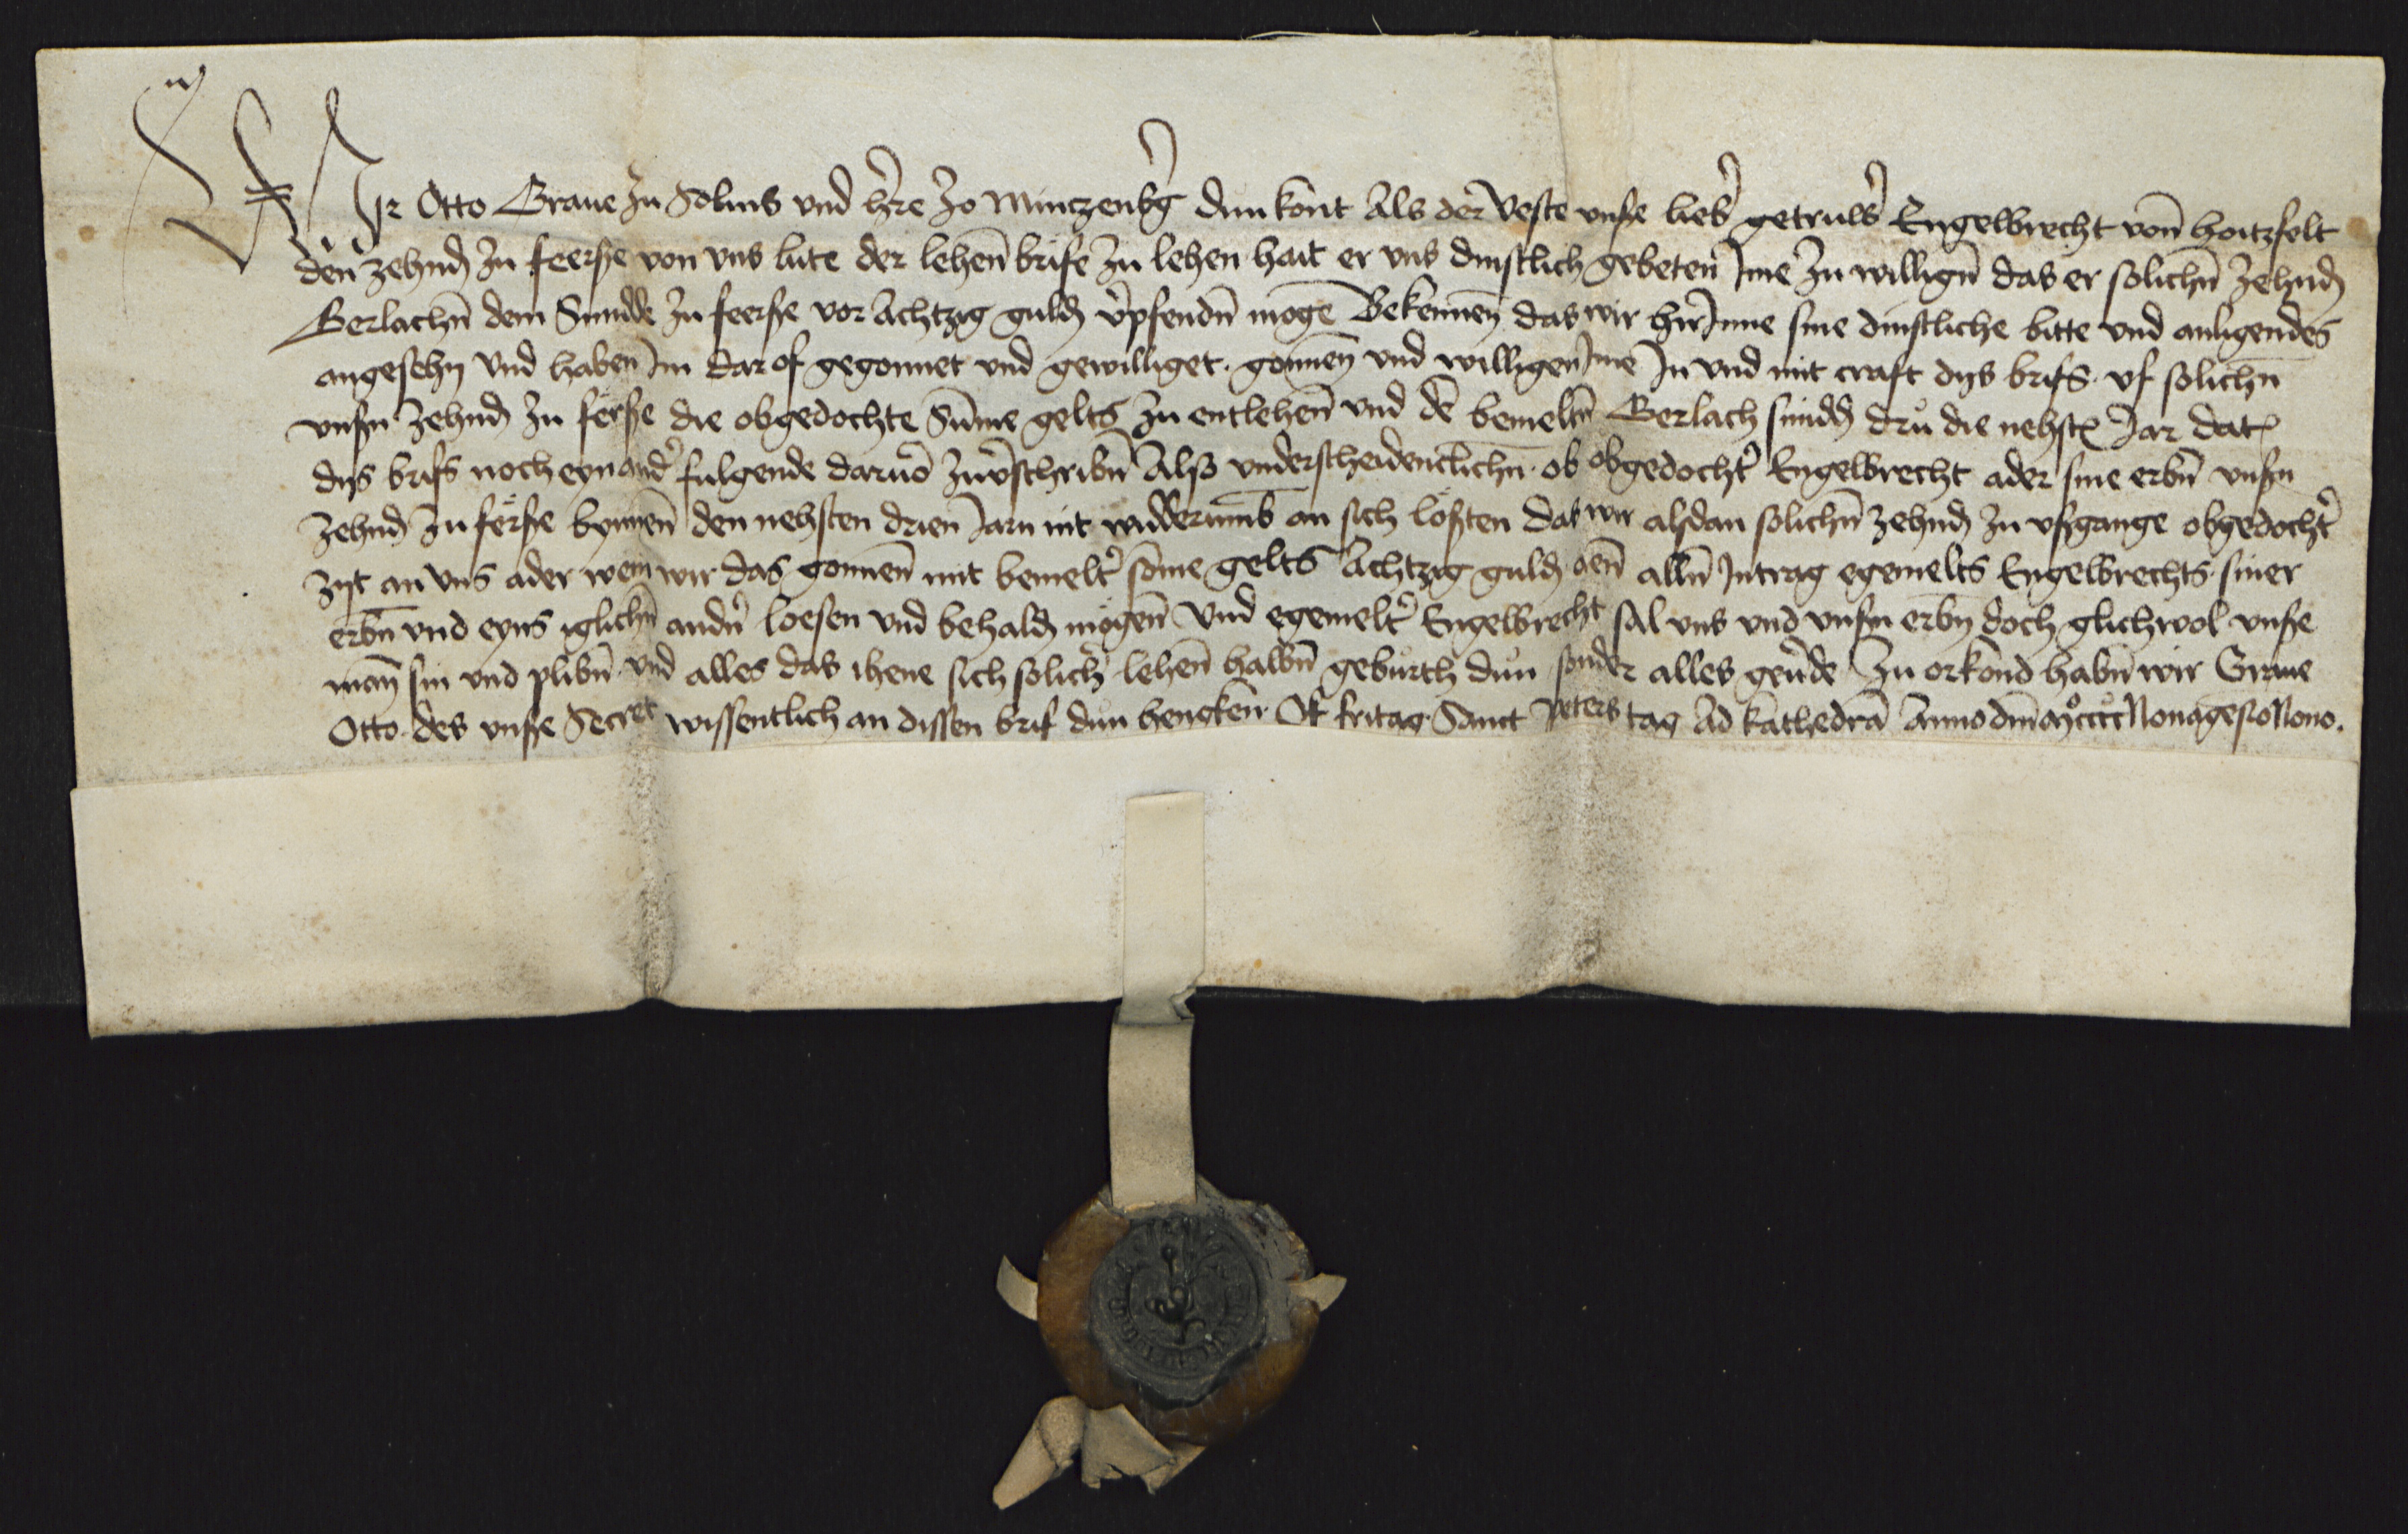 Wir Otto Graue zu Solms vnd h're zo Mintzenb'g dun kont Als der Veste vnße lieb' getruw' Engelbrecht von hoitzfelt
den zehnd zu feerße von vns lute der lehen brife zu lehen hait er vns dinstlich gebeten Ime zu willign das er solichn zehnd
Gerlachn dem Smidde zu feerße vor Achtzig guld v'pfendn moge Bekennen das wir hir Inne sine dinstliche bitte vnd anligendes
angesehn vnd haben Im dar of gegonnet vnd gewilliget. gonnen vnd willigen Ime In vnd mit craft dys brifs. vf solichn
vnßn zehnd zu ferße die obgedochte Sume gelts zu entlehen vnd de bemeltn Gerlach smidd dru die nehst Jar dat
dys brifs noch eynand' fulgende daruo zuv'schribn Also vnderscheidenclichn. ob obgedocht' Engelbrecht ader sine erbn vnßn
zehnd zu ferße bynnen den nehsten drien Jarn nit widderumb an sich lößten das wir alsdan solichn zehnd zu vßgange obgedocht'
zyt an vns ader wem wir das gonnen mit bemelt' some gelts Achtzig guld aen alln Intrag egemelts Engelbrechts. siner
erbn vnd eyns iglichn andn' loesen vnd behald mögen Vnd egemelt' Engelbrecht sal vns vnd vnßn erbn doch glichwol vnße
man sin vnd plibn. vnd alles das ihene sich solich' lehen halbn geburth dun sonder alles geu'de Zu orkond habn wir Graue
Otto. des vnße Secret wissentlich an dissen brif dun hengken. Of fritag Sanct Peters tag Ad kathedra Anno dm Mo cccco Nonagesio Nono.